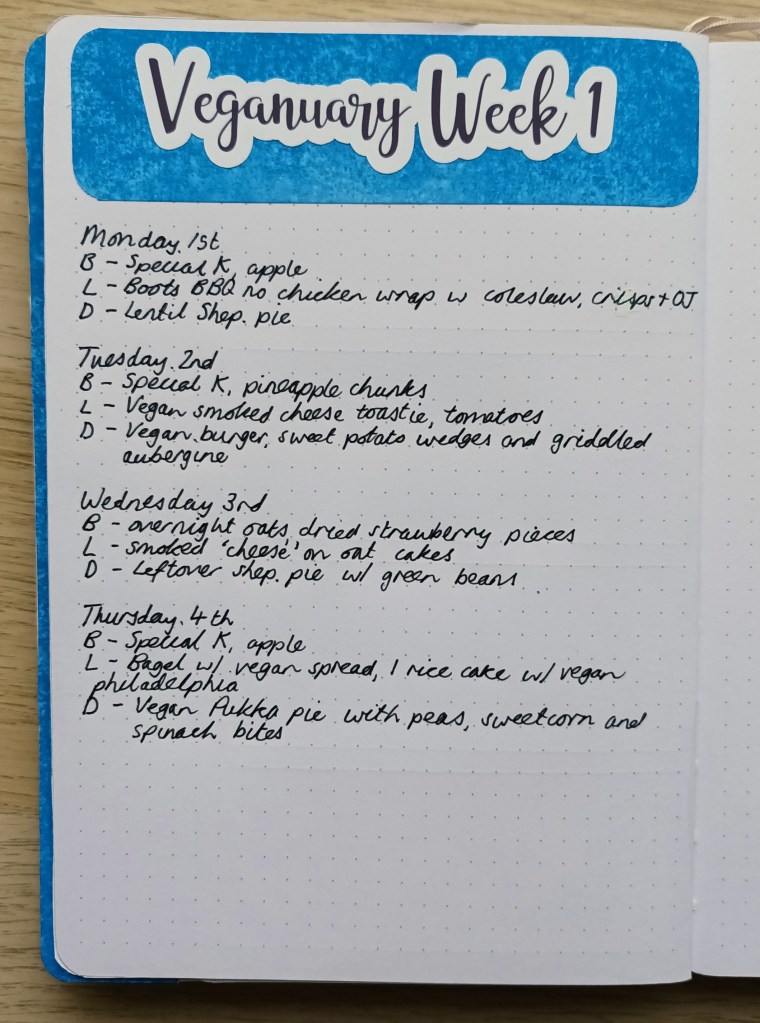 Veganuary Week 1
Monday 1st
B - Special K, apple
L - Boots BBQ no chicken wrap w coleslaw, crisps + OJ
D - Lentil Shep. pie
Tuesday 2nd
B - Special K, pineapple chunks
L - Vegan smoked cheese toastie, tomatoes
D - Vegan burger, sweet potato wedges and griddled
aubergine
Wednesday 3rd
B - overnight oats, dried strawberry pieces
L - smoked 'cheese' on oat cakes
D - Leftover shep. pie w/ green beans
Thursday 4th
B - Special K, apple
L - Bagel w/ vegan spread, 1 rice cake w/ vegan
philadelphia
D - Vegan Pukka pie with peas, sweetcorn and
spinach bites